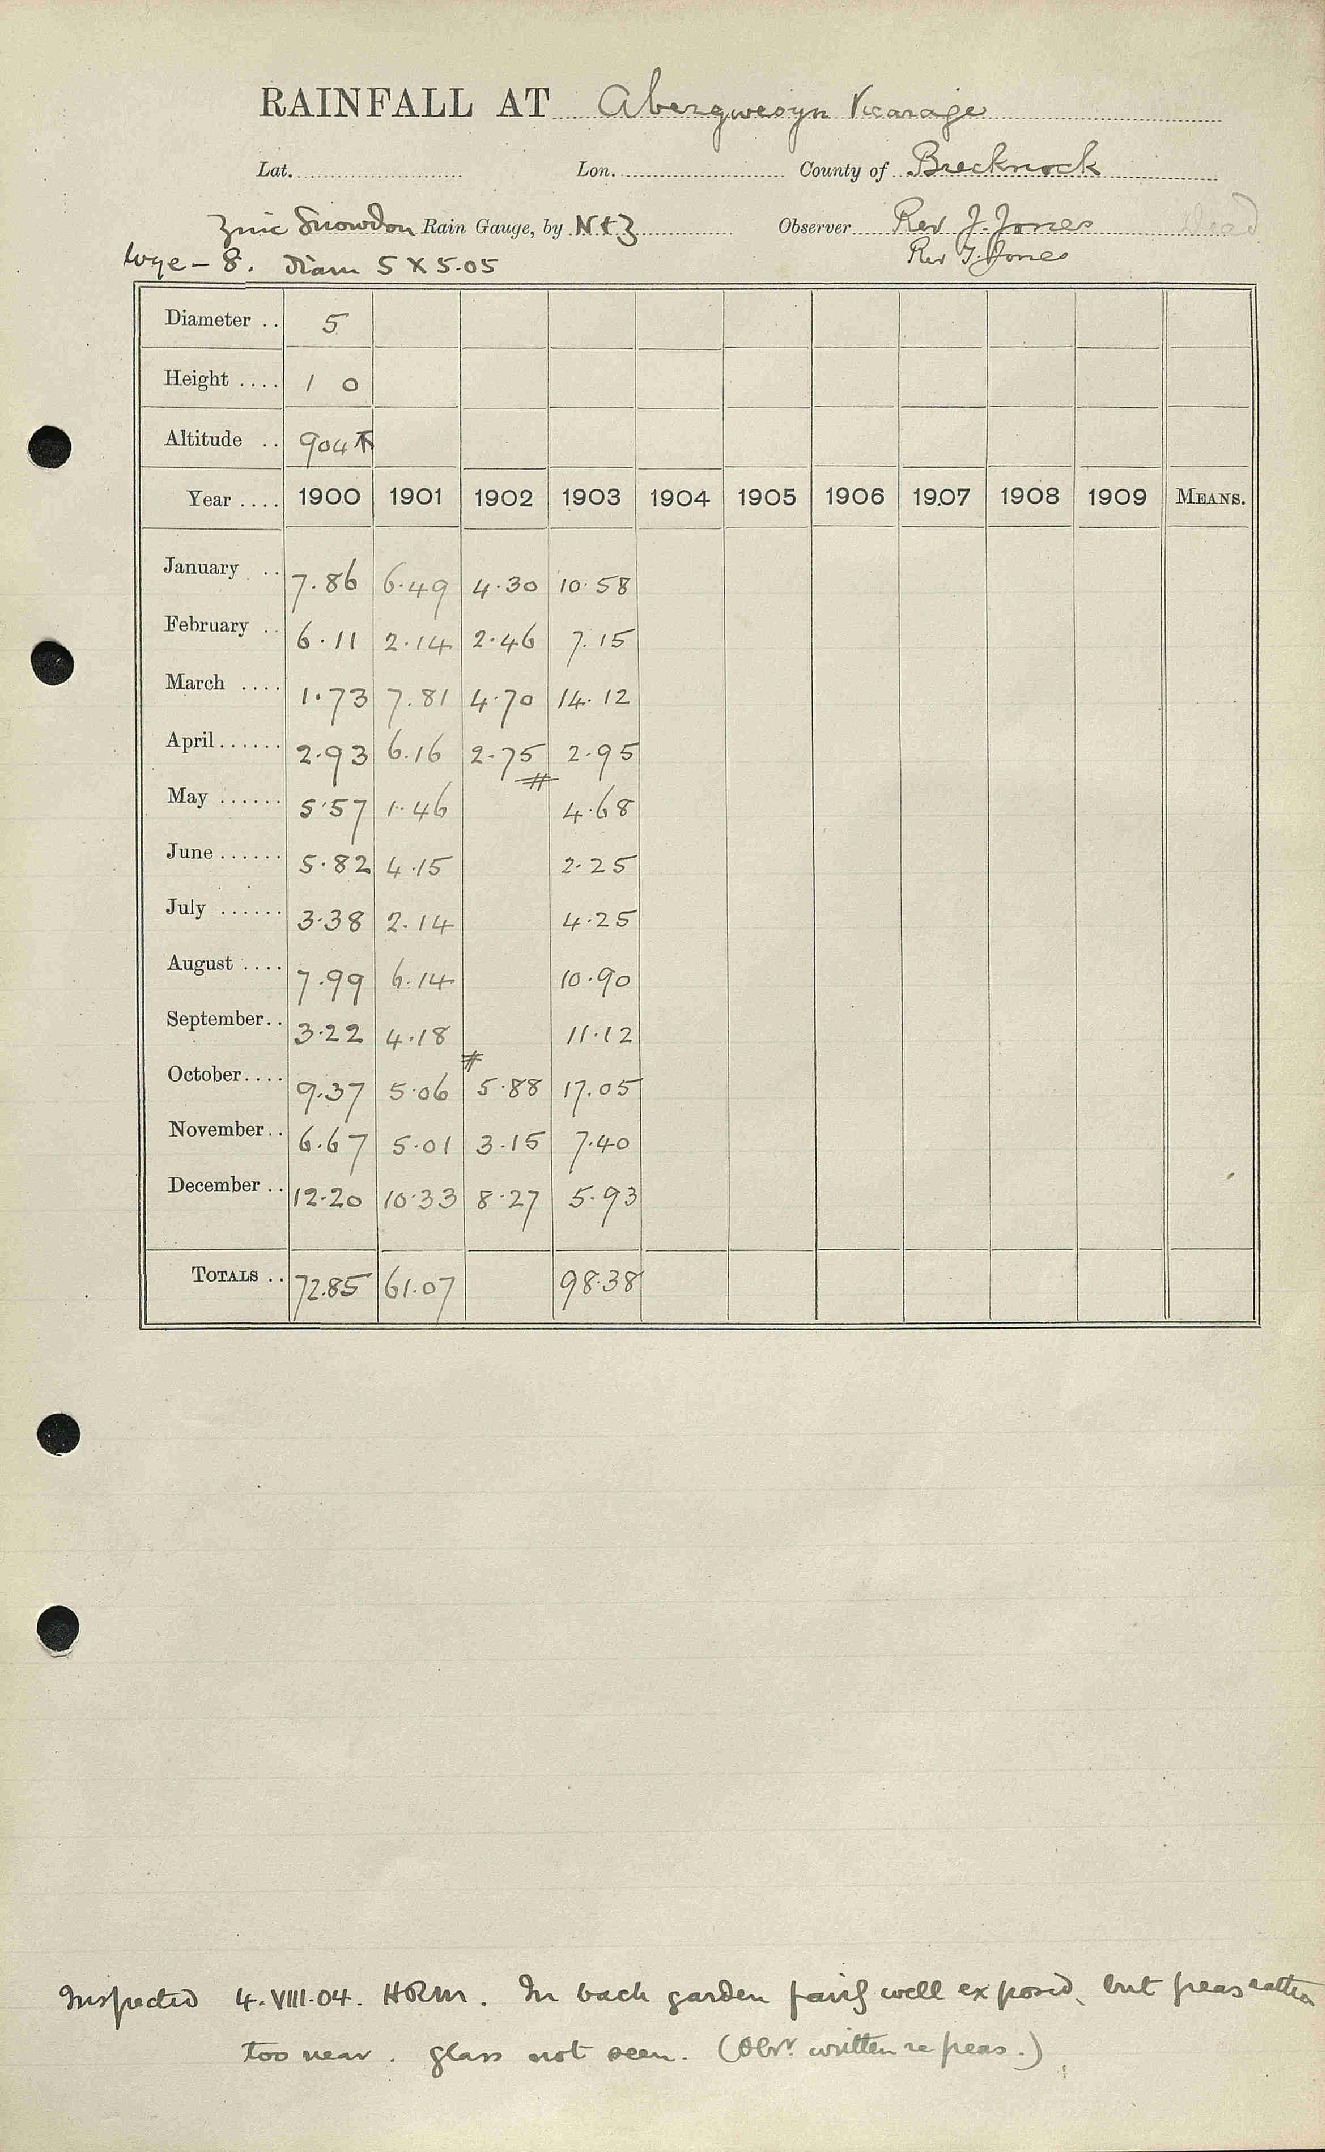 RAINFALL AT Abergwesyn Vicarage
Lat. Lon. County of Brecknock
Zinc Snowdon Rain Gauge, by N&Z Observer Rev J. Jones Dead
Wye - 8. Diam 5 X 5.05 Rev T. Jones
Diameter .. 5
Height .... 1 0
Altitude .. 904
Year .... 1900 1901 1902 1903 1904 1905 1906 1907 1908 1909 MEANS.
January .. 7.86 6.49 4.30 10.58
February .. 6.11 2.14 2.46 7.15
March .... 1.73 7.81 4.70 14.12
April...... 2.93 6.16 2.75 2.95
May ...... 5.57 1.46 4.68
June ...... 5.82 4.15 2.25
July ...... 3.38 2.14 4.25
August .... 7.99 6.14 10.90
September.. 3.22 4.18 11.12
October.... 9.37 5.06 5.88 17.05
November.. 6.67 5.01 3.15 7.40
December .. 12.20 10.33 8.27 5.93
TOTALS .. 72.85 61.07 98.38
Inspected 4.VIII.04. HRM. In back garden fairly well exposed, but peas rather
too near. glass not seen. (Obsr. written re peas.)